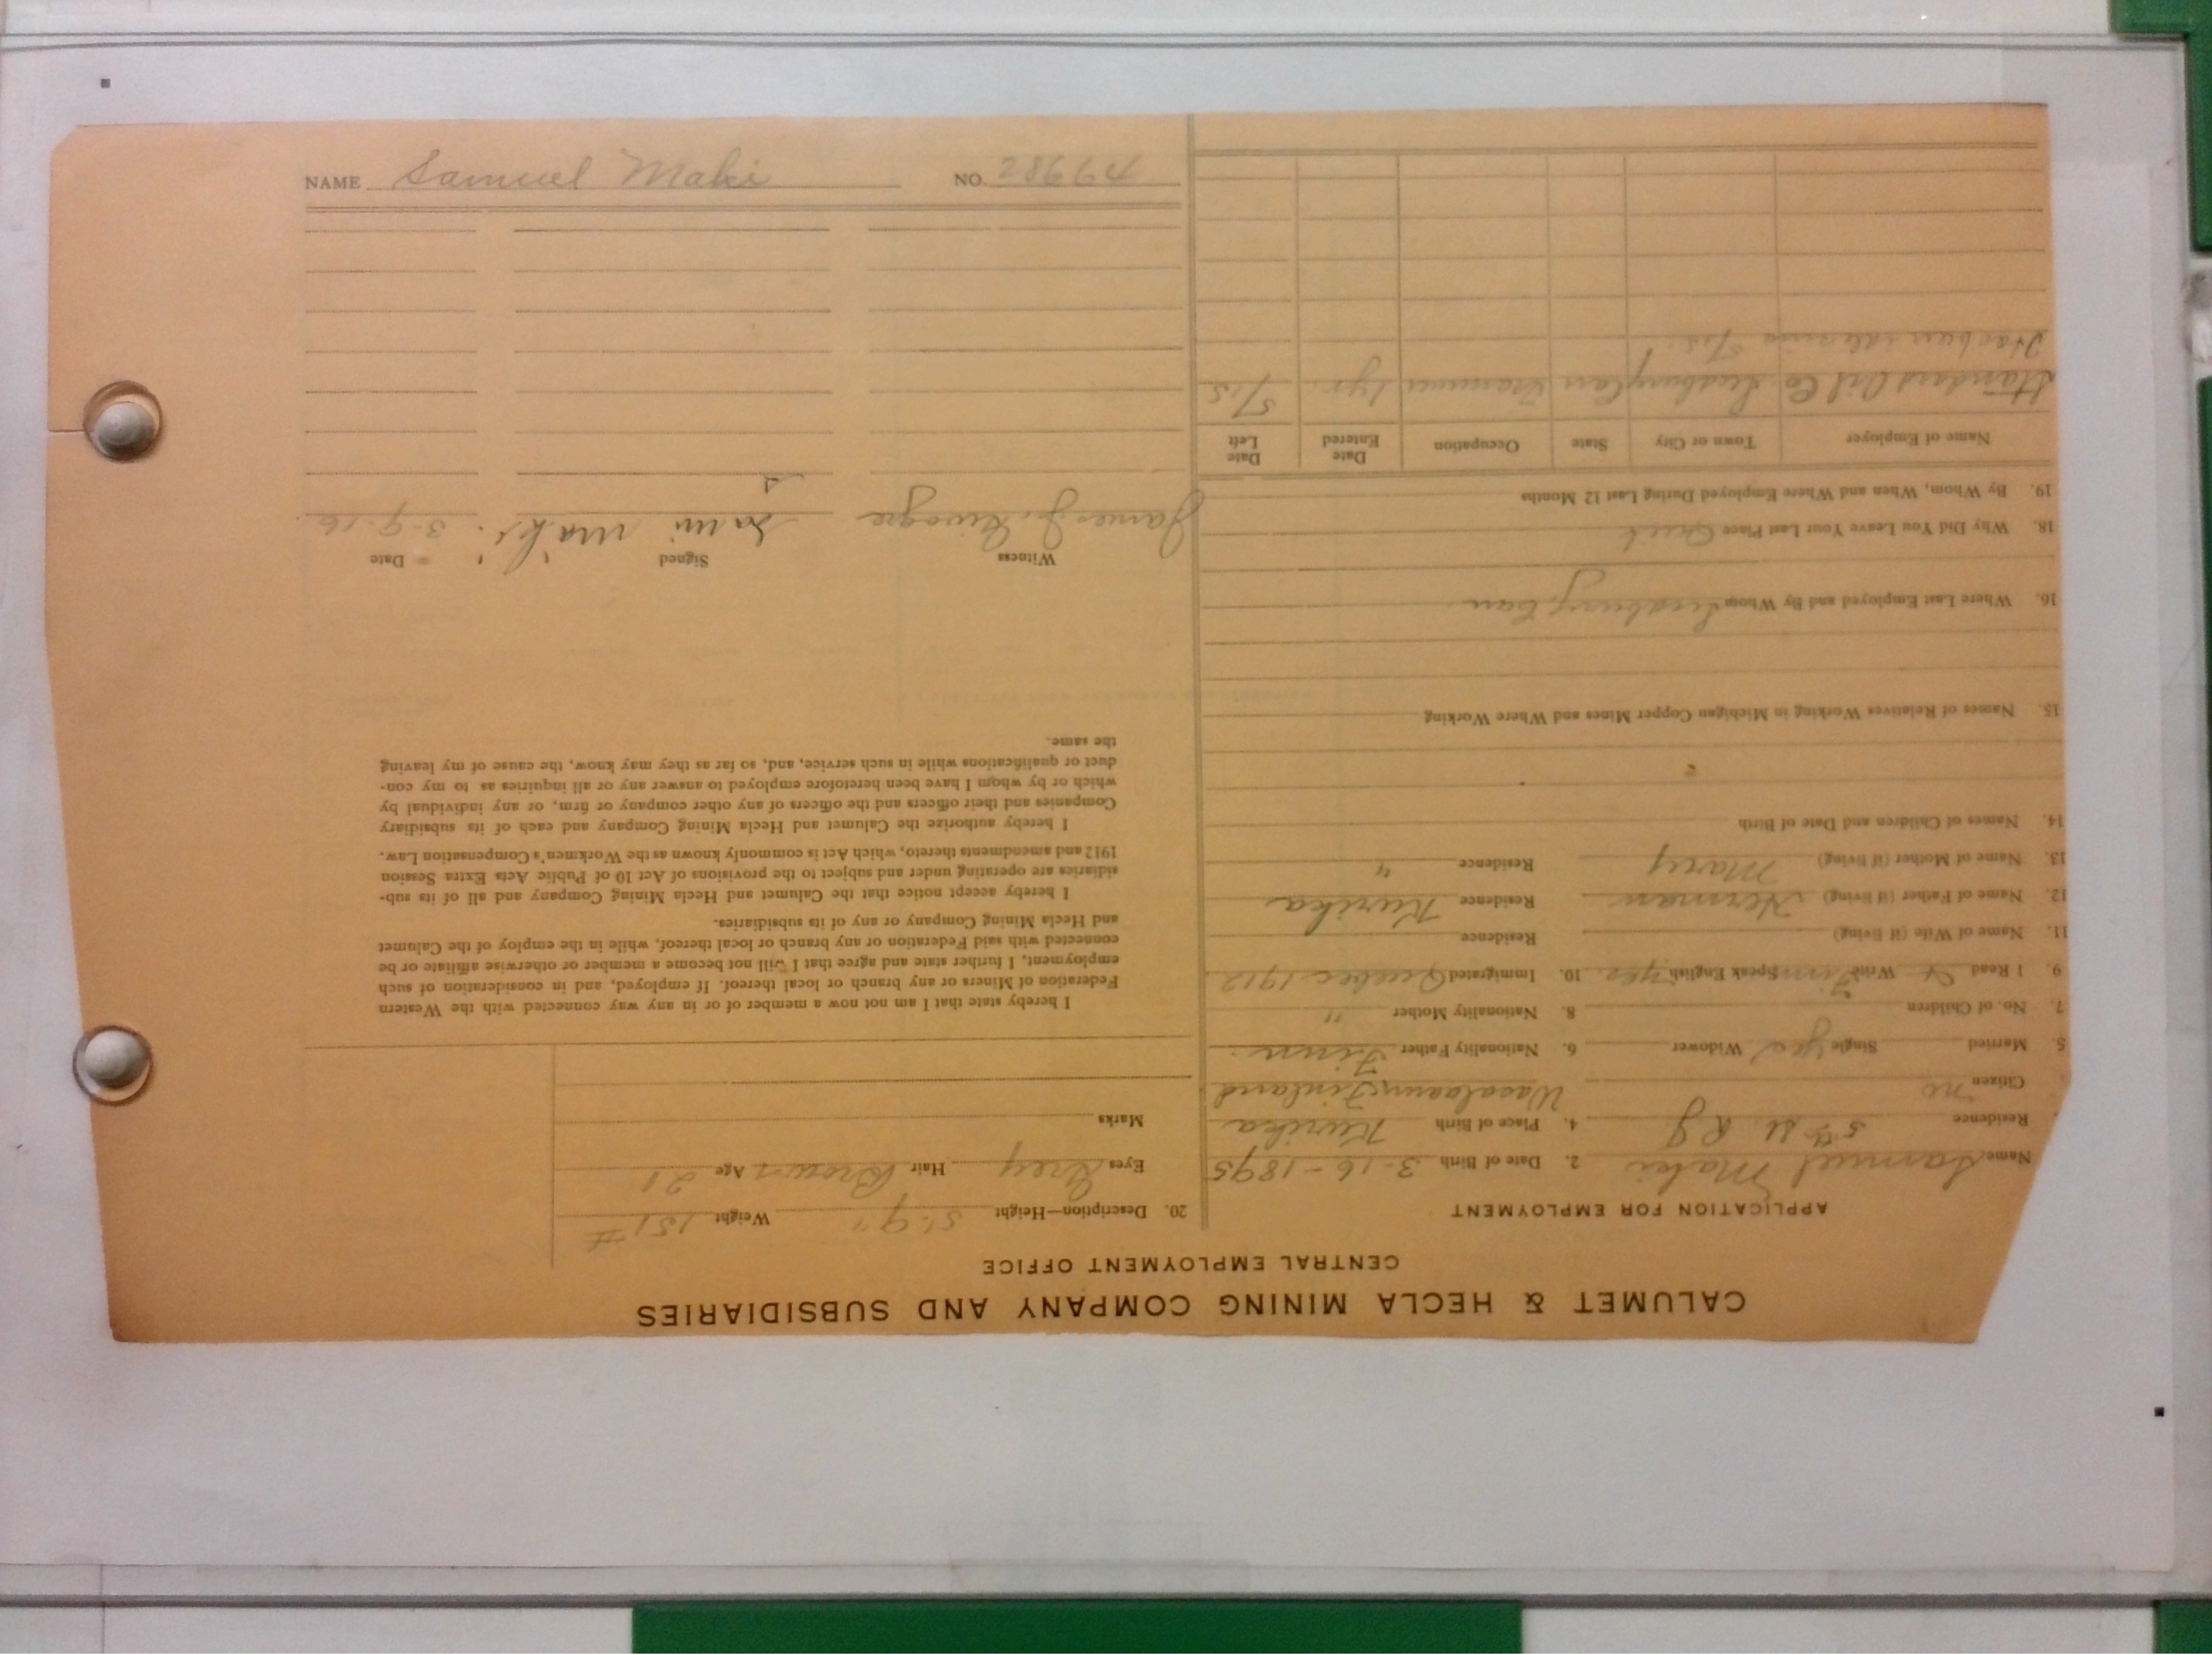 NAME Samuel Maki NO. 28664
CALUMET & HECLA MINING COMPANY AND SUBSIDIARIES
CENTRAL EMPLOYMENT OFFICE
APPLICATION FOR EMPLOYMENT
Name Samuel Maki 2. Date of Birth 3-16-1895
Residence 5th St R J 4. Place of Birth Kurika
Citizen no Finland
5. Married Single yes Widower 6. Nationality Father Finn
7. No. of Children 8. Nationality Mother "
9. I Read & Write Finn Speak English yes 10. Immigrated Quebec 1912
11. Name of Wife (if living) Residence
12. Name of Father (if living) Herman Residence Kurika
13. Name of Mother (if living) Mary Residence "
14. Names of Children and Date of Birth
15. Names of Relatives Working in Michigan Copper Mines and Where Working
16. Where Last Employed and By Whom Sudbury, Can
18. Why Did You Leave Your Last Place Quit
19. By Whom, When and Where Employed During Last 12 Months
Name of Employer Town or City State Occupation Date Entered Date Left
Standard Oil Co. Sudbury Can Trammer 1 yr. 5/15
Has been idle since 5/15.
20. Description—Height 5' 9" Weight 151#
Eyes Grey Hair Brown Age 21
Marks
I hereby state that I am not now a member of or in any way connected with the Western
Federation of Miners or any branch or local thereof. If employed, and in consideration of such
employment, I further state and agree that I will not become a member or otherwise affiliate or be
connected with said Federation or any branch or local thereof, while in the employ of the Calumet
and Hecla Mining Company or any of its subsidiaries.
I hereby accept notice that the Calumet and Hecla Mining Company and all of its sub-
sidiaries are operating under and subject to the provisions of Act 10 of Public Acts Extra Session
1912 and amendments thereto, which Act is commonly known as the Workmen's Compensation Law.
I hereby authorize the Calumet and Hecla Mining Company and each of its subsidiary
Companies and their officers and the officers of any other company or firm, or any individual by
which or by whom I have been heretofore employed to answer any or all inquiries as to my con-
duct or qualifications while in such service, and, so far as they may know, the cause of my leaving
the same.
Witness Signed Date
James J. Sami Maki 3-9-16